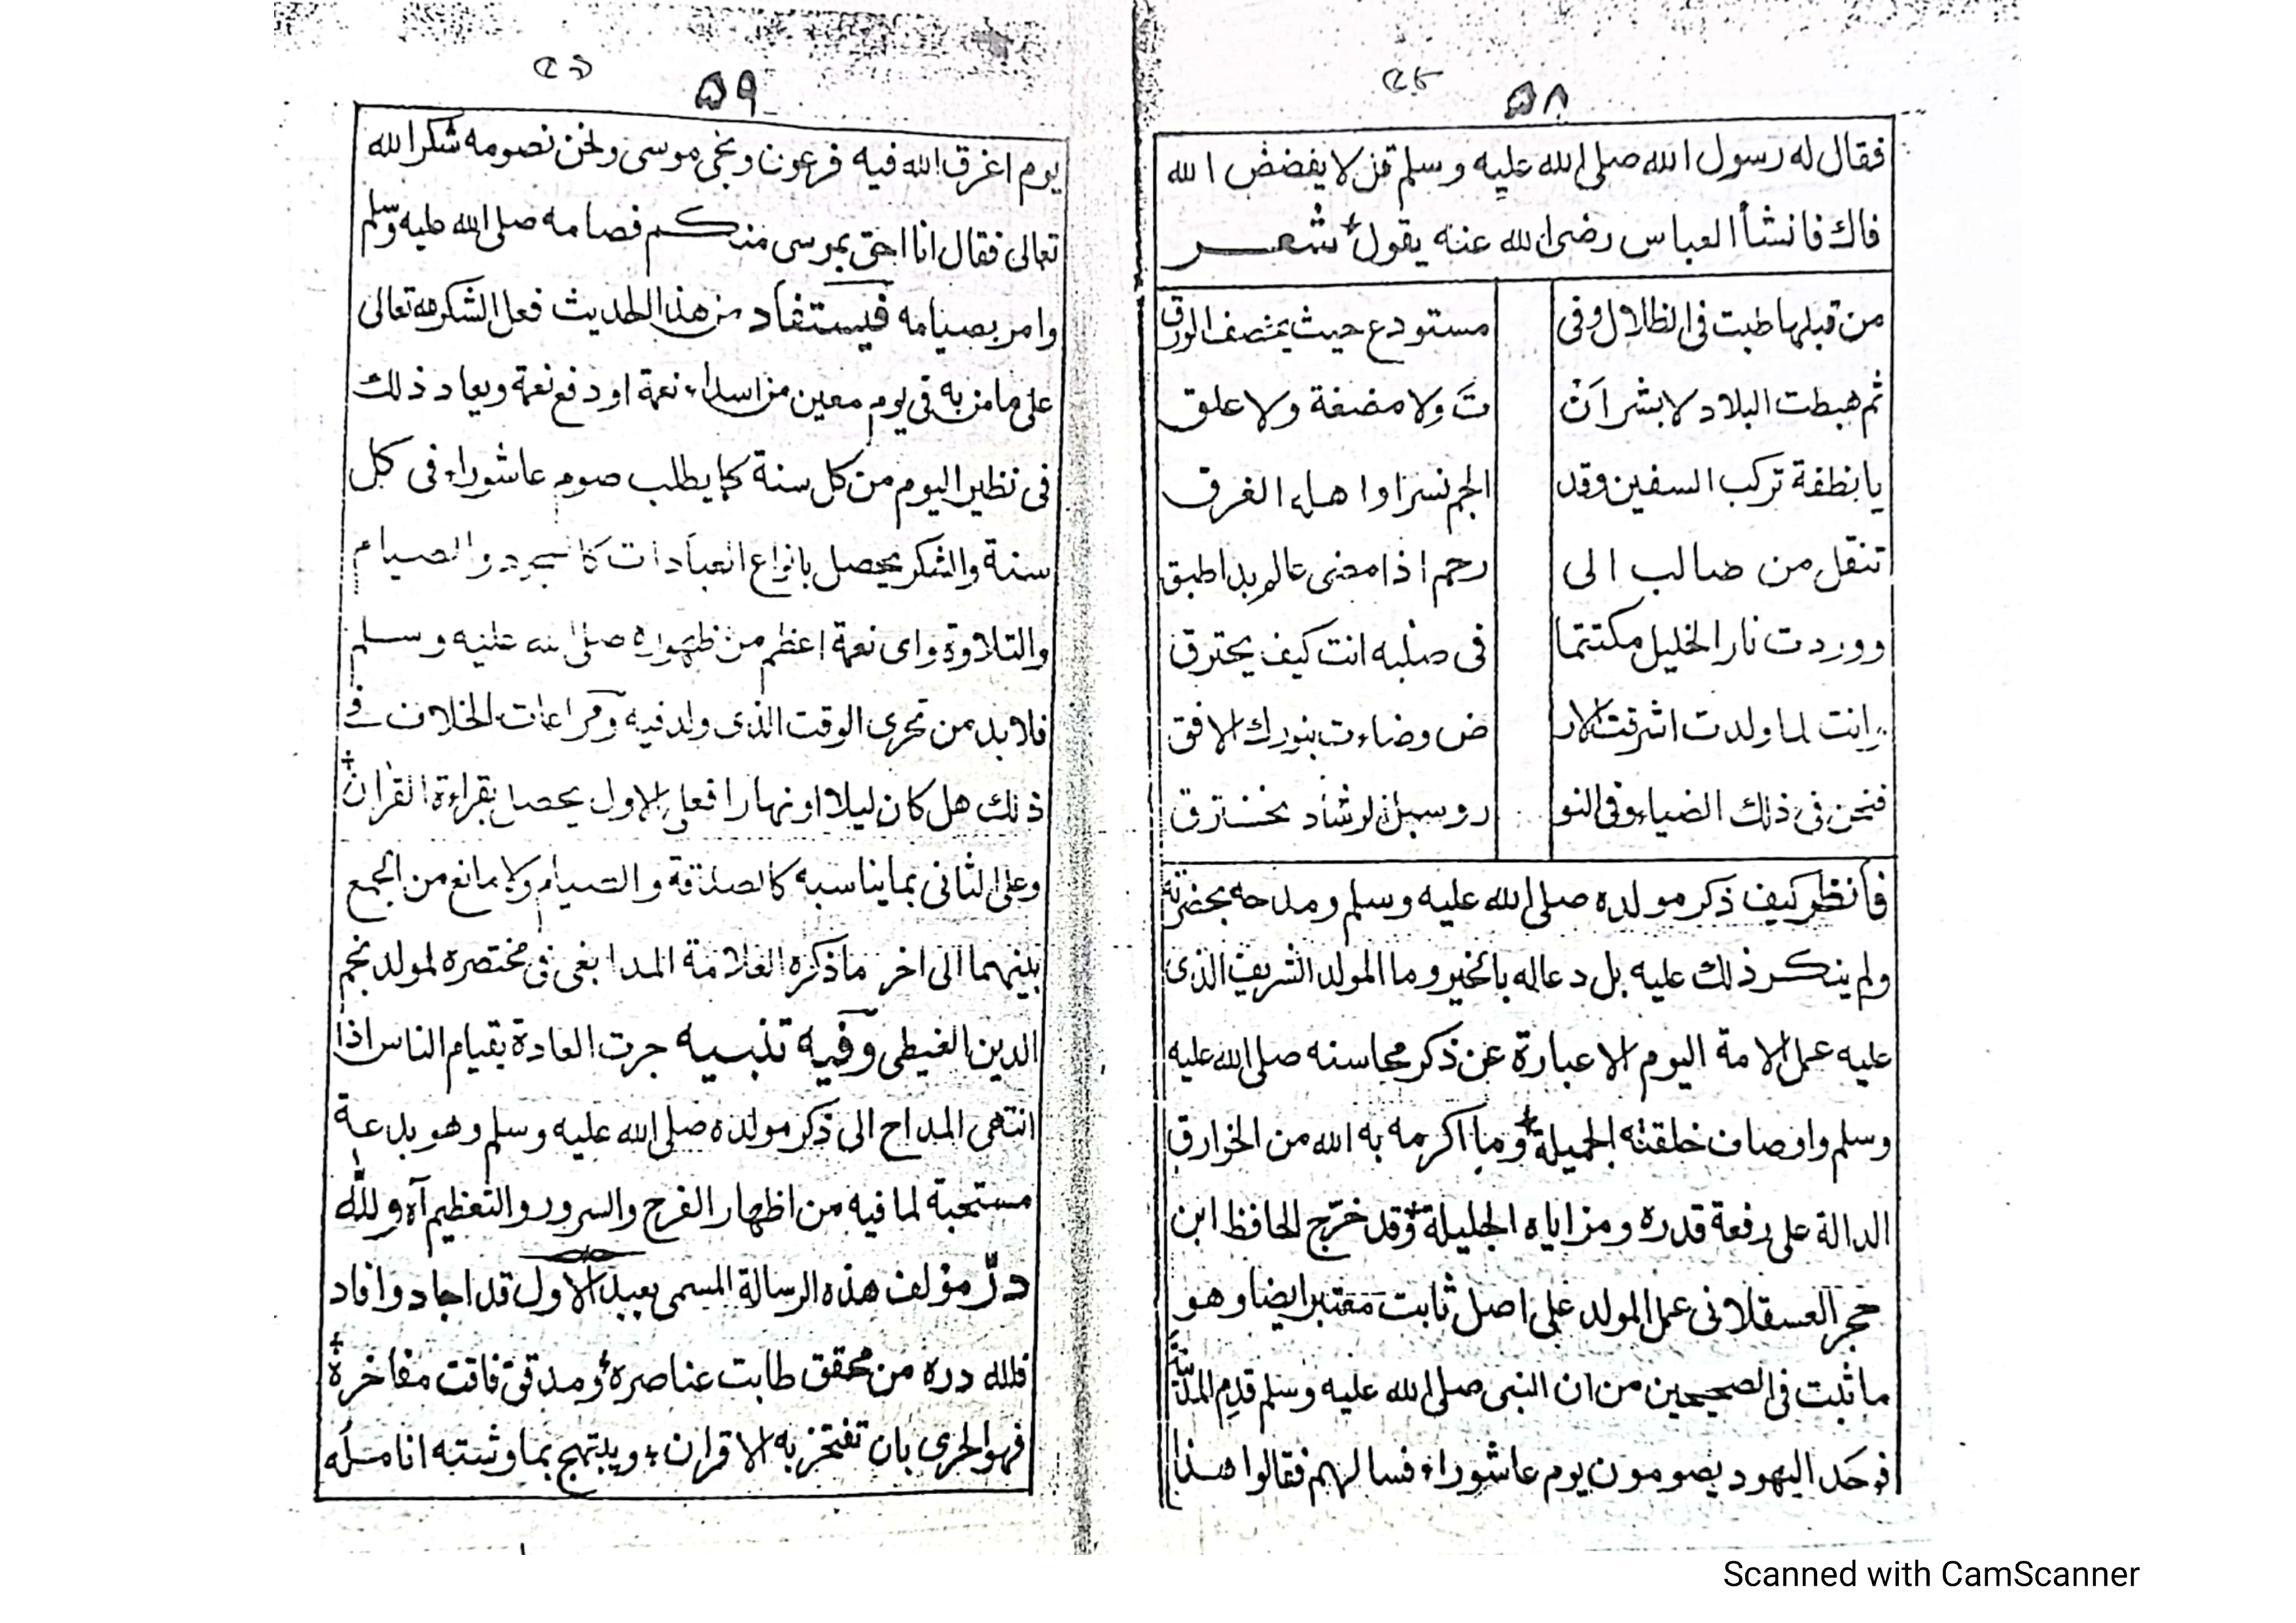 ٥٨
فقال له رسول الله صلى الله عليه وسلم قل لا يفضض الله
فاك فانشأ العباس رضى الله عنه يقول شعر
من قبلها طبت فى الظلال وفى مستودع حيث يخصف الورق
ثم هبطت البلاد لا بشر اَنْ تَ ولا مضغة ولا علق
يا نطفة تركب السفين وقد الجم نسرا واهله الغرق
تنقل من صالب الى رحم اذا مضى عالم بدا طبق
ووردت نار الخليل مكتتما فى صلبه انت كيف يحترق
وانت لما ولدت اشرقت الار ض وضاءت بنورك الافق
فنحن فى ذلك الضياء وفى النو ر وسبل الرشاد نخترق
فأنظر كيف ذكر مولده صلى الله عليه وسلم ومدحه بحضرته
ولم ينكر ذلك عليه بل دعا له بالخير وما المولد الشريف الذى
عليه عمل الامة اليوم الا عبارة عن ذكر محاسنه صلى الله عليه
وسلم واوصاف خلقته الجميلة وما اكرمه به الله من الخوارق
الدالة على رفعة قدره ومزاياه الجليلة وقد خرّج الحافظ ابن
حجر العسقلانى عمل المولد على اصل ثابت معتبر ايضا وهو
ما ثبت فى الصحيحين من ان النبى صلى الله عليه وسلم قدم المدينة
فوجد اليهود يصومون يوم عاشوراء فسالهم فقالوا هذا
٥٩
يوم اغرق الله فيه فرعون ونجى موسى ونحن نصومه شكرا لله
تعالى فقال انا احق بموسى منكم فصامه صلى الله عليه وسلم
وامر بصيامه فيستفاد من هذا الحديث فعل الشكر لله تعالى
على ما من به فى يوم معين من اسداء نعمة او دفع نقمة ويعاد ذلك
فى نظير اليوم من كل سنة كما يطلب صوم عاشوراء فى كل
سنة والشكر يحصل بانواع العبادات كالسجود والصيام
والتلاوة واى نعمة اعظم من ظهوره صلى الله عليه وسلم
فلا بد من تحرى الوقت الذى ولد فيه ومراعات الخلاف فى
ذلك هل كان ليلا او نهارا فعلى الاول يحصل بقراءة القران
وعلى الثانى بما يناسبه كالصدقة والصيام ولا مانع من الجمع
بينهما الى اخر ما ذكره العلامة المدابغى فى مختصره لمولد نجم
الدين الغيطى وفيه تنبيه جرت العادة بقيام الناس اذا
انتهى المداح الى ذكر مولده صلى الله عليه وسلم وهو بدعة
مستحبة لما فيه من اظهار الفرح والسرور والتعظيم آه ولله
درّ مؤلف هذه الرسالة المسمى بعبد الاول قد اجاد وافاد
فلله دره من محقق طابت عناصره ومدقق فاقت مفاخره
فهو الحرى بان تفتخر به الاقران ويبتهج بما وشته انامله
Scanned with CamScanner